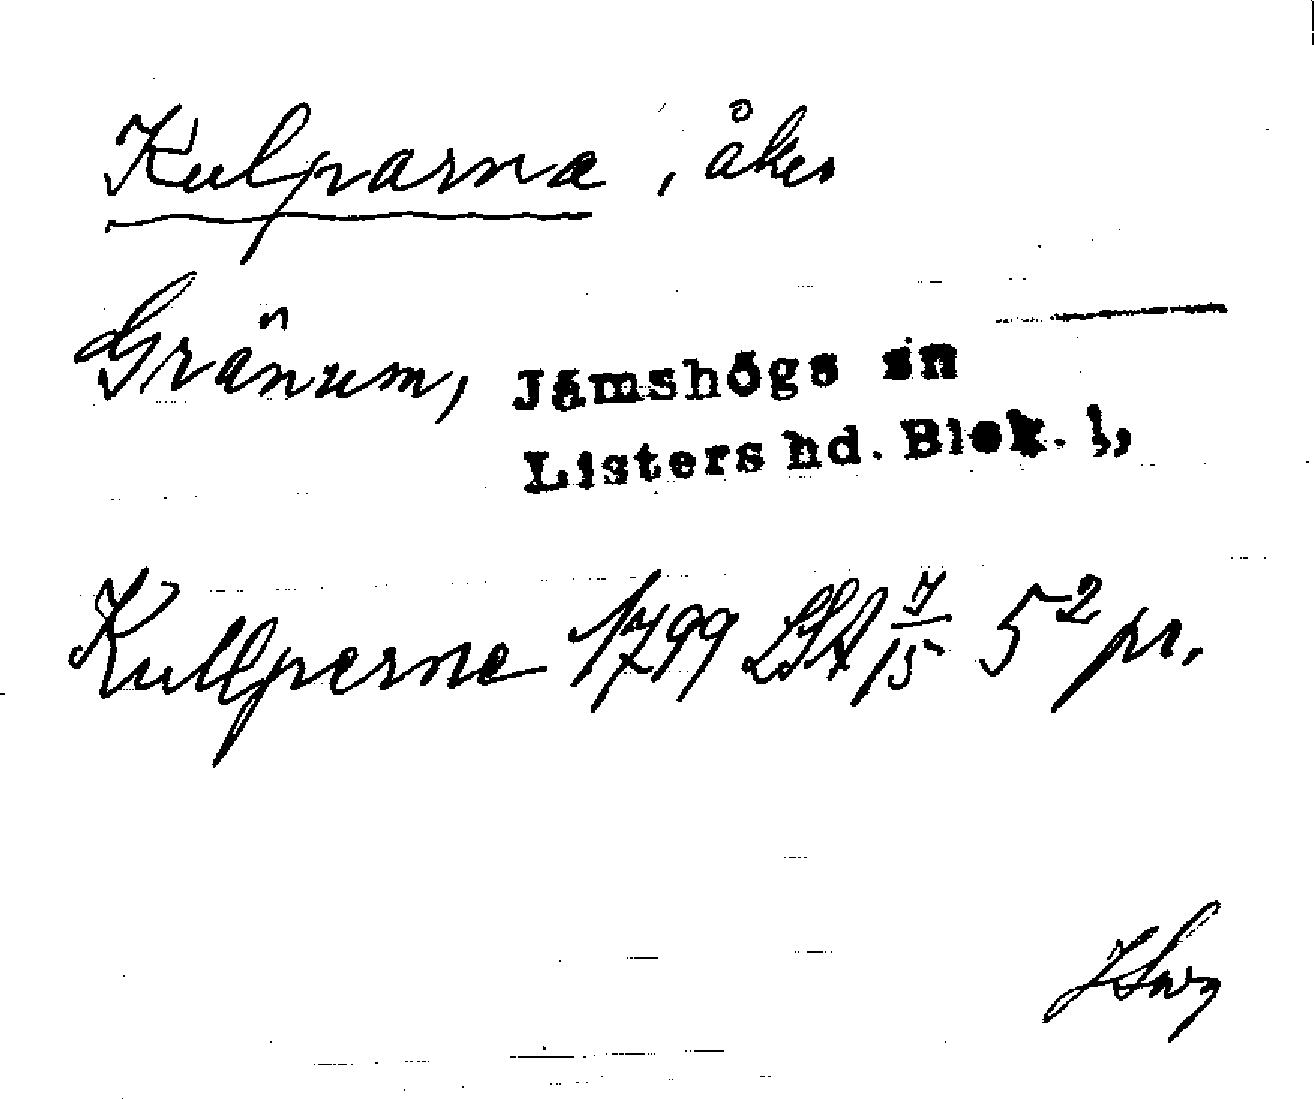 Kulparna, åker
Gränum, Jämshögs sn
Listers hd. Blek. l,
Kullperne 1799 LSA 7/15 5² pr.